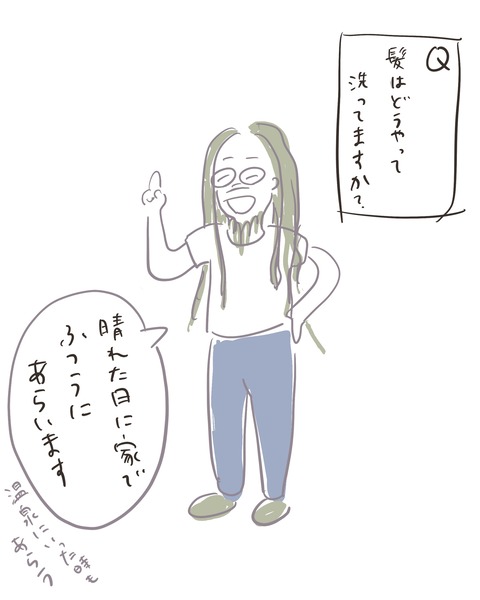 Q
髪はどうやって
洗ってますか?
晴れた日に家で
ふつうに
あらいます
温泉にいった時も
あらう